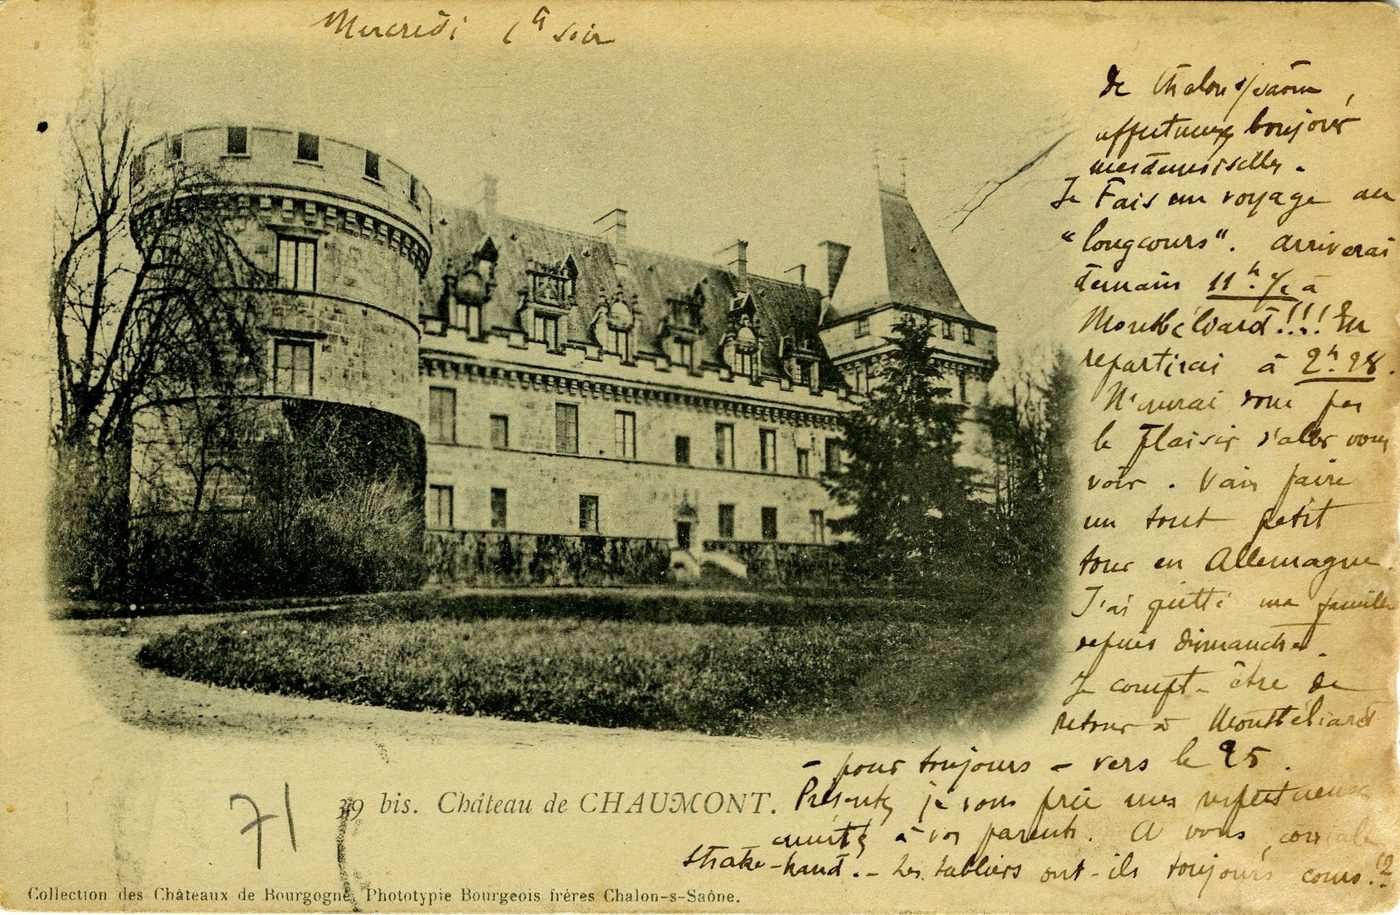 Mercredi 6h soir
de Chalon s/saône,
affectueux bonjour
mesdemoiselles.
Je Fais un voyage au
"longcours". arriverai
demain 11h 1/2 à
Montbéliard!!! En
repartirai à 2h 28.
N'aurai donc pas
le Plaisir d'aller vous
voir. Vais faire
un tout petit
tour en Allemagne.
J'ai quitté ma famille
depuis dimanche.
Je compte être de
retour à Montbéliard
- pour toujours - vers le 25.
Présentez je vous prie mes respectueuses
amitiés à vos parents. A vous, cordiale
shake-hand. - Les tabliers ont-ils toujours cours!?
71
39 bis. Château de CHAUMONT.
Collection des Châteaux de Bourgogne, Phototypie Bourgeois frères Chalon-s-Saône.